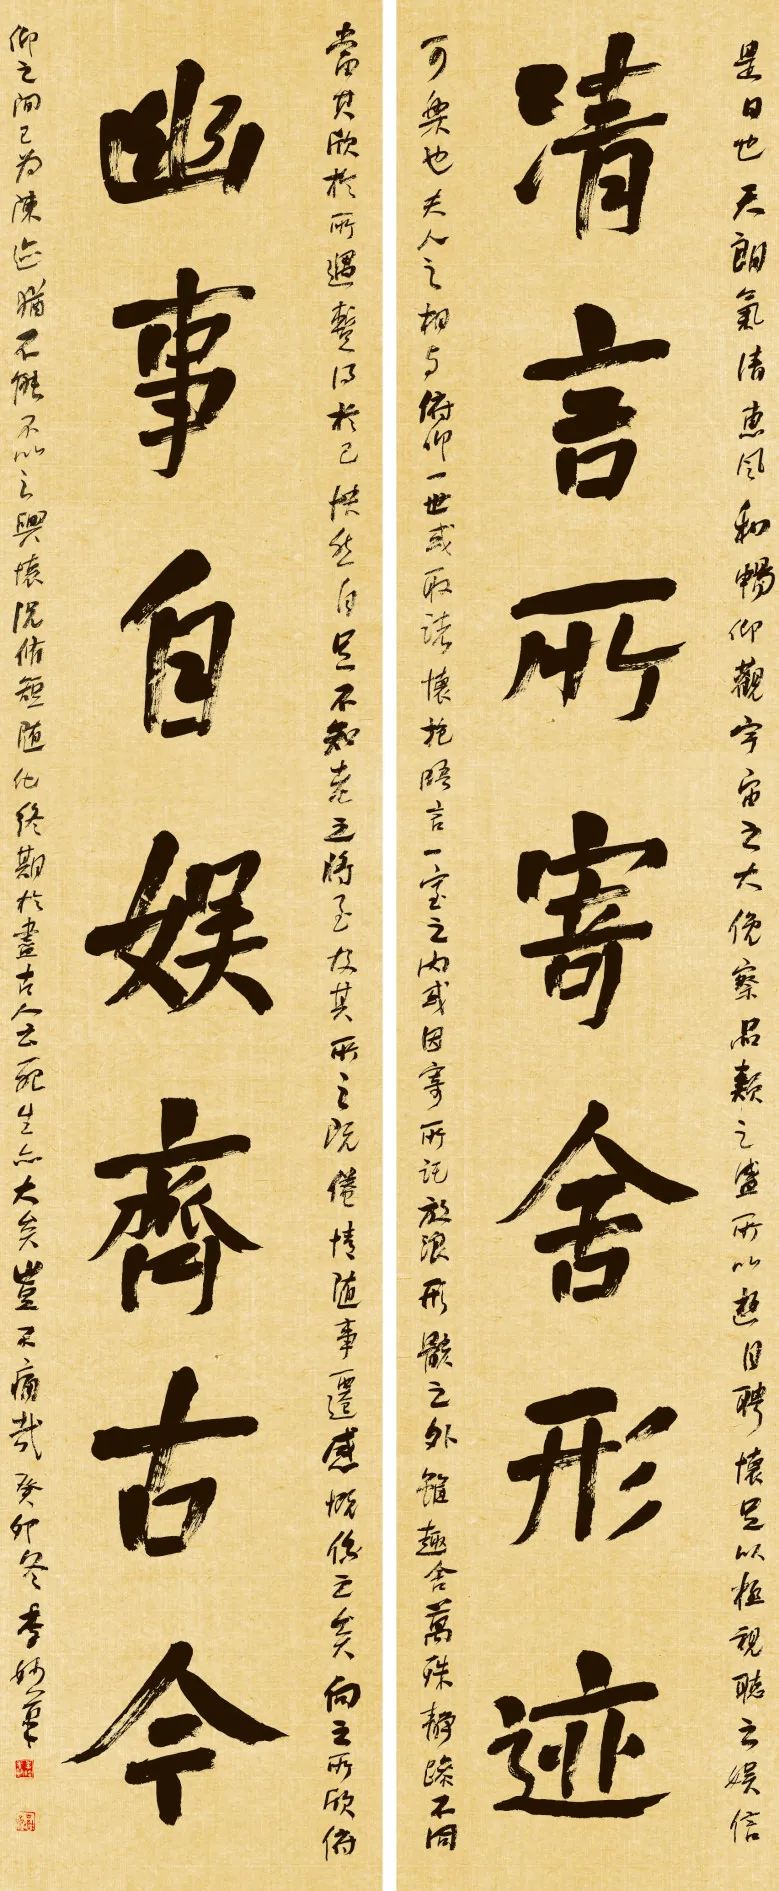 是日也天朗氣清惠風和暢仰觀宇宙之大俛察品類之盛所以遊目騁懷足以極視聽之娛信
清言所寄舍形迹
可樂也夫人之相與俯仰一世或取諸懷抱晤言一室之內或因寄所託放浪形骸之外雖趣舍萬殊靜躁不同
當其欣於所遇暫得於己怏然自足不知老之將至及其所之既倦情隨事遷感慨係之矣向之所欣俯
幽事自娛齊古今
仰之間已為陳迹猶不能不以之興懷況脩短隨化終期於盡古人云死生亦大矣豈不痛哉癸卯冬李妙